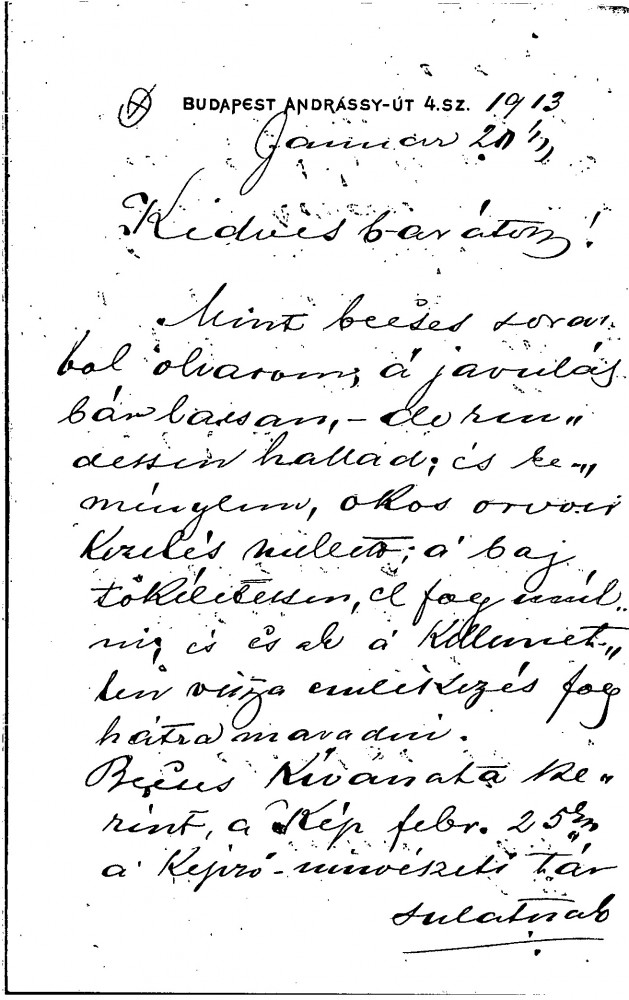 BUDAPEST ANDRÁSSY-ÚT 4.SZ. 1913
Januar 20 án
Kedves barátom!
Mint becses sorai„
ból olvasom, a javulás
bár lassan, - de ren„
dessen hallad; és re„
ménylem, okos orvosi
kezelés mellett; a baj
tökéletessen, el fog múl„
ni, és csak a kellemet„
len vissza emlékezés fog
hátra maradni.
Becses kívánata sze„
rint, a Kép febr. 25én
a Képző-művészeti tár
sulatnak